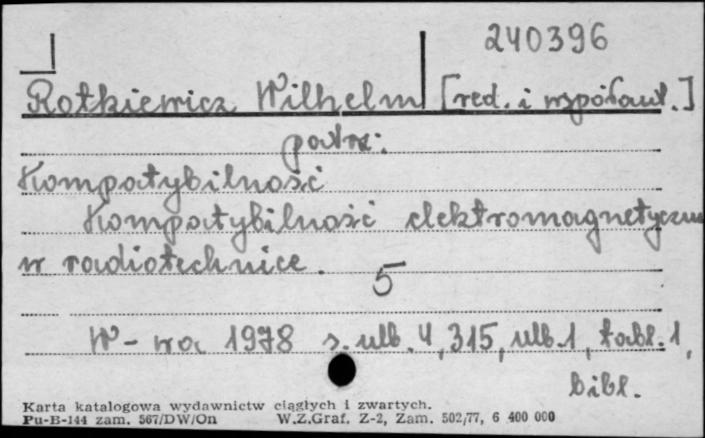 240396
Rotkiewicz Wilhelm [red. i współaut.]
patrz:
Kompatybilność
Kompatybilność elektromagnetyczna
w radiotechnice.
5
W-wa 1978 s. ulb. 4, 315, ulb. 1, tabl. 1,
bibl.
Karta katalogowa wydawnictw ciągłych i zwartych.
Pu-B-144 zam. 567/DW/On W.Z.Graf. Z-2, Zam. 502/77, 6 400 000